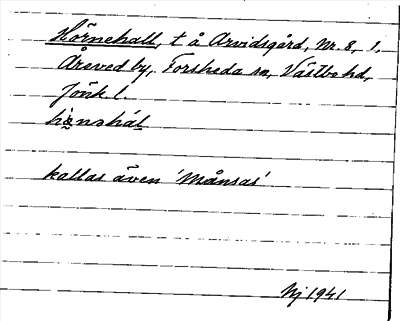 Hörnehall, t å Arvidsgård, Nr. 8, 1,
Åreved by, Forsheda sn, Västbo hd,
Jönk l.
kallas även 'Månsas'
Nj 1941